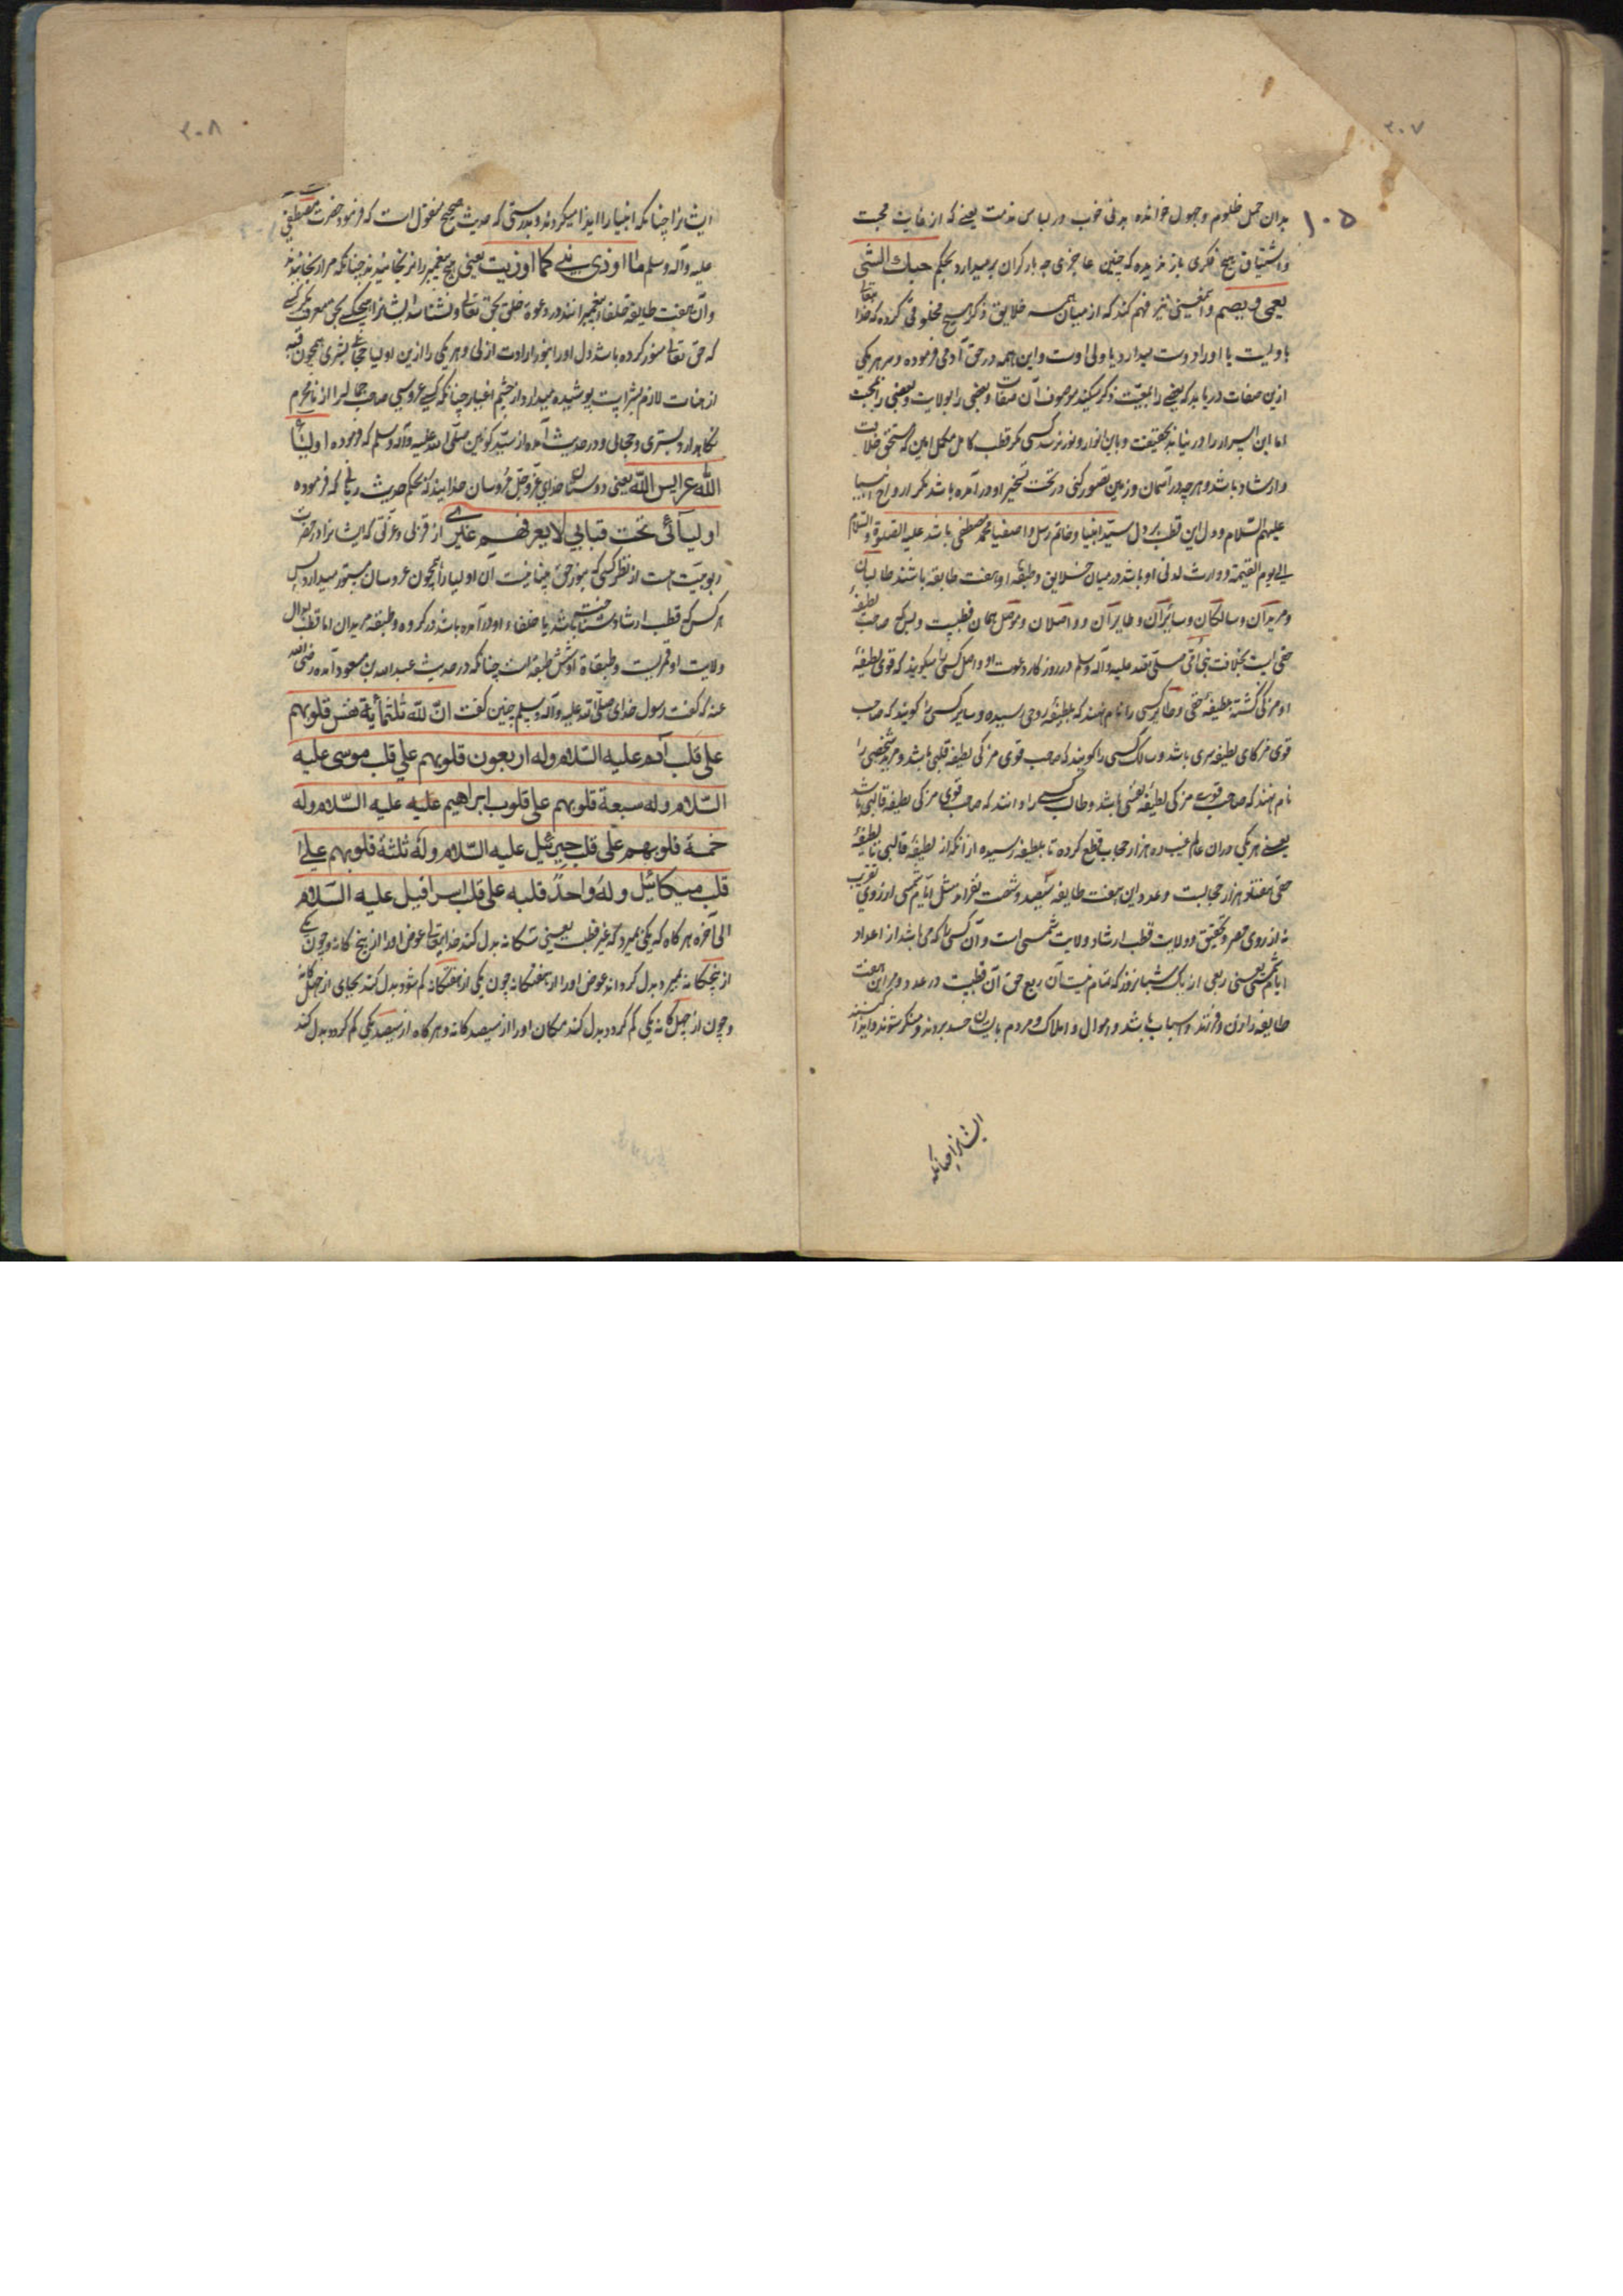 ۲۰۷
۱۰۵
بدان حمل ظلوم و جهول خوانده اند نی خوب در لباس مذمت یعنی که از غایت محبت
و اشتیاق هیچ فکری باز ندیده که چنین عاجزی چه بار گران برمیدارد بحکم حبك الشئ
یعمی و یصم و این معنی نیز فهم کند که از میان همه خلایق ذکر هیچ مخلوقی نکرده که خدا تعالی
با ولیت یا او را دوست میدارد یا ولی اوست و این همه در حق آدمی فرموده و سر هر یکی
ازین صفات دریابد که بعضی را بمعیت ذکر میکند موصوف آن صفات و بعضی را بولایت و بعضی را بمحبت
اما این اسرار را در نیابد بحقیقت و باین انوار و نور نرسد کسی مگر قطب کامل مکمل امین که مستحق خلافت
و ارشاد باشد و هر چه در آسمان و زمین تصور کنی در تحت تسخیر او در آمده باشد مگر ارواح انبیا
علیهم السلام و دل این قطب بر دل سید انبیا و خاتم رسل و اصفیا محمد مصطفی باشد علیه الصلوة و السلام
الی یوم القیمة و وارث لدنی او باشد در میان خلایق و طبقه او هفت طایفه باشند طالبان
و مریدان و سالکان و سایران و طایران و واصلان و موصل همان قطبیت و لیکن صاحب لطیفه
حقی است بخلافت نبی امی صلی الله علیه و آله و سلم در روزگار دعوت او و اصل کسی را میگویند که قوی لطیفهٔ
او مزکی گشته بلطیفهٔ حقی و طایر کسی را نام نهند که بلطیفهٔ روحی رسیده و سایر کسی را گویند که صاحب
قوی مزکای لطیفه سری باشد و سالک کسی را گویند که صاحب قوی مزکی لطیفه قلبی باشد و مرید شخصی را
نام نهند که صاحب قوت مزکی لطیفهٔ نفسی باشد و طالب کسی را دانند که صاحب قوی مزکی لطیفه قالبی باشد
یعنی هر یکی در آن عالم غیب ده هزار حجاب قطع کرده تا بلطیفه رسیده از آنکه از لطیفهٔ قالبی تا لطیفهٔ
حقی هفتاد هزار حجابست و عدد این هفت طایفه سیصد و شصت نفراند مثل ایام شمسی از روی تقریب
نه از روی حصر و تحقیق و ولایت قطب ارشاد ولایت شمسی است و آن کسی را که می باشد از اعداد
ایام شمسی یعنی ربعی از یک شبانروز که تمام نیست آن ربع حق آن قطبیت در عدد و مر این هفت
طایفه را زن و فرزند و اسباب باشد و اموال و املاک و مردم بایشان حسد بردند و منکر شوند و ایذا کنند
ایشانرا چنانکه
۲۰۸
ایشانرا چنانکه انبیا را ایذا میکردند و بدرستی که حدیث صحیح منقول است که فرمود حضرت مصطفی صلی الله
علیه و آله و سلم ما اوذی نبی کما اوذیت یعنی هیچ پیغمبر را نرنجانیدند چنانکه مرا رنجانیدند
و آن هفت طایفه خلفاء پیغمبرانند در دعوة خلق بحق تعالی و نشناسد ایشانرا هیچکس بحق معرفت مگر کسی
که حق تعالی منور کرده باشد دل او را بنور ارادت ازلی و هر یکی را ازین اولیا حجابی بشری همچون قبه
از صفات لازم بشریت پوشیده میدارد از چشم اغیار چنانکه کسی عروسی صاحب جمال را از نامحرم
نگاه دارد بستری و حجابی و در حدیث آمده از سید کونین صلی الله علیه و آله و سلم که فرموده اولیاء
الله عرایس الله یعنی دوستان خدای عز و جل عروسان خدایند که بحکم حدیث ربانی که فرموده
اولیائی تحت قبابی لا یعرفهم غیری از قربی و عزتی که ایشانرا در حضرت
ربوبیت هست از نظر کسی که بنور حق بینا نیست آن اولیا را همچون عروسان مستور میدارد پس
هر کس که قطب ارشاد شناخته باشد یا خلفاء او در آمده باشد در گروه و طبقه مریدان اما قطب ابدال
ولایت او قمریست و طبقات او شش طبقه است چنانکه در حدیث عبد الله بن مسعود آمده رضی الله
عنه که گفت رسول خدای صلی الله علیه و آله و سلم چنین گفت ان لله ثلثمأیة نفس قلوبهم
علی قلب آدم علیه السلام وله اربعون قلوبهم علی قلب موسی علیه
السلام وله سبعة قلوبهم علی قلوب ابراهیم علیه علیه السلام وله
خمسة قلوبهم علی قلب جبرئیل علیه السلام وله ثلثة قلوبهم علی
قلب میکائیل وله واحد قلبه علی قلب اسرافیل علیه السلام
الی آخره هر گاه که یکی بمیرد که غیر قطبست یعنی سه گانه بدل کند خدایتعالی عوض او را از پنج گانه و چون یکی
از پنجگانه بمیرد بدل گرداند عوض او را از هفتگانه چون یکی از هفتگانه کم شود بدل کند بجای از چهل گانه
و چون از چهل گانه یکی کم گردد بدل کند مکان او را از سیصد گانه و هر گاه از سیصد یکی کم گردد بدل کند